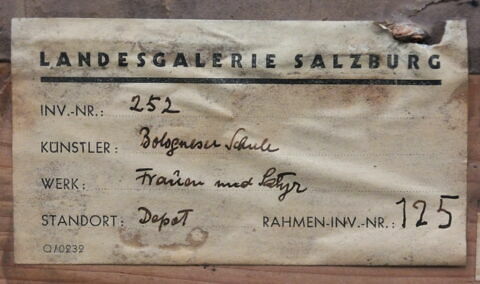 LANDESGALERIE SALZBURG
INV.-NR.: 252
KÜNSTLER: Bologneser Schule
WERK: Frauen und Satyr
STANDORT: Depot RAHMEN-INV.-NR.: 125
Q/0232